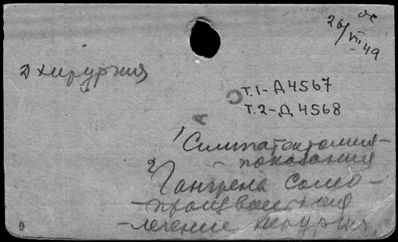 ос
26/VII 49
2) хирургия
Т.1-Д4567
Т.2-Д4568
А
1) Симпатектомия-
- показания
2) Гангрена само-
- произвольная
- лечение хирургия